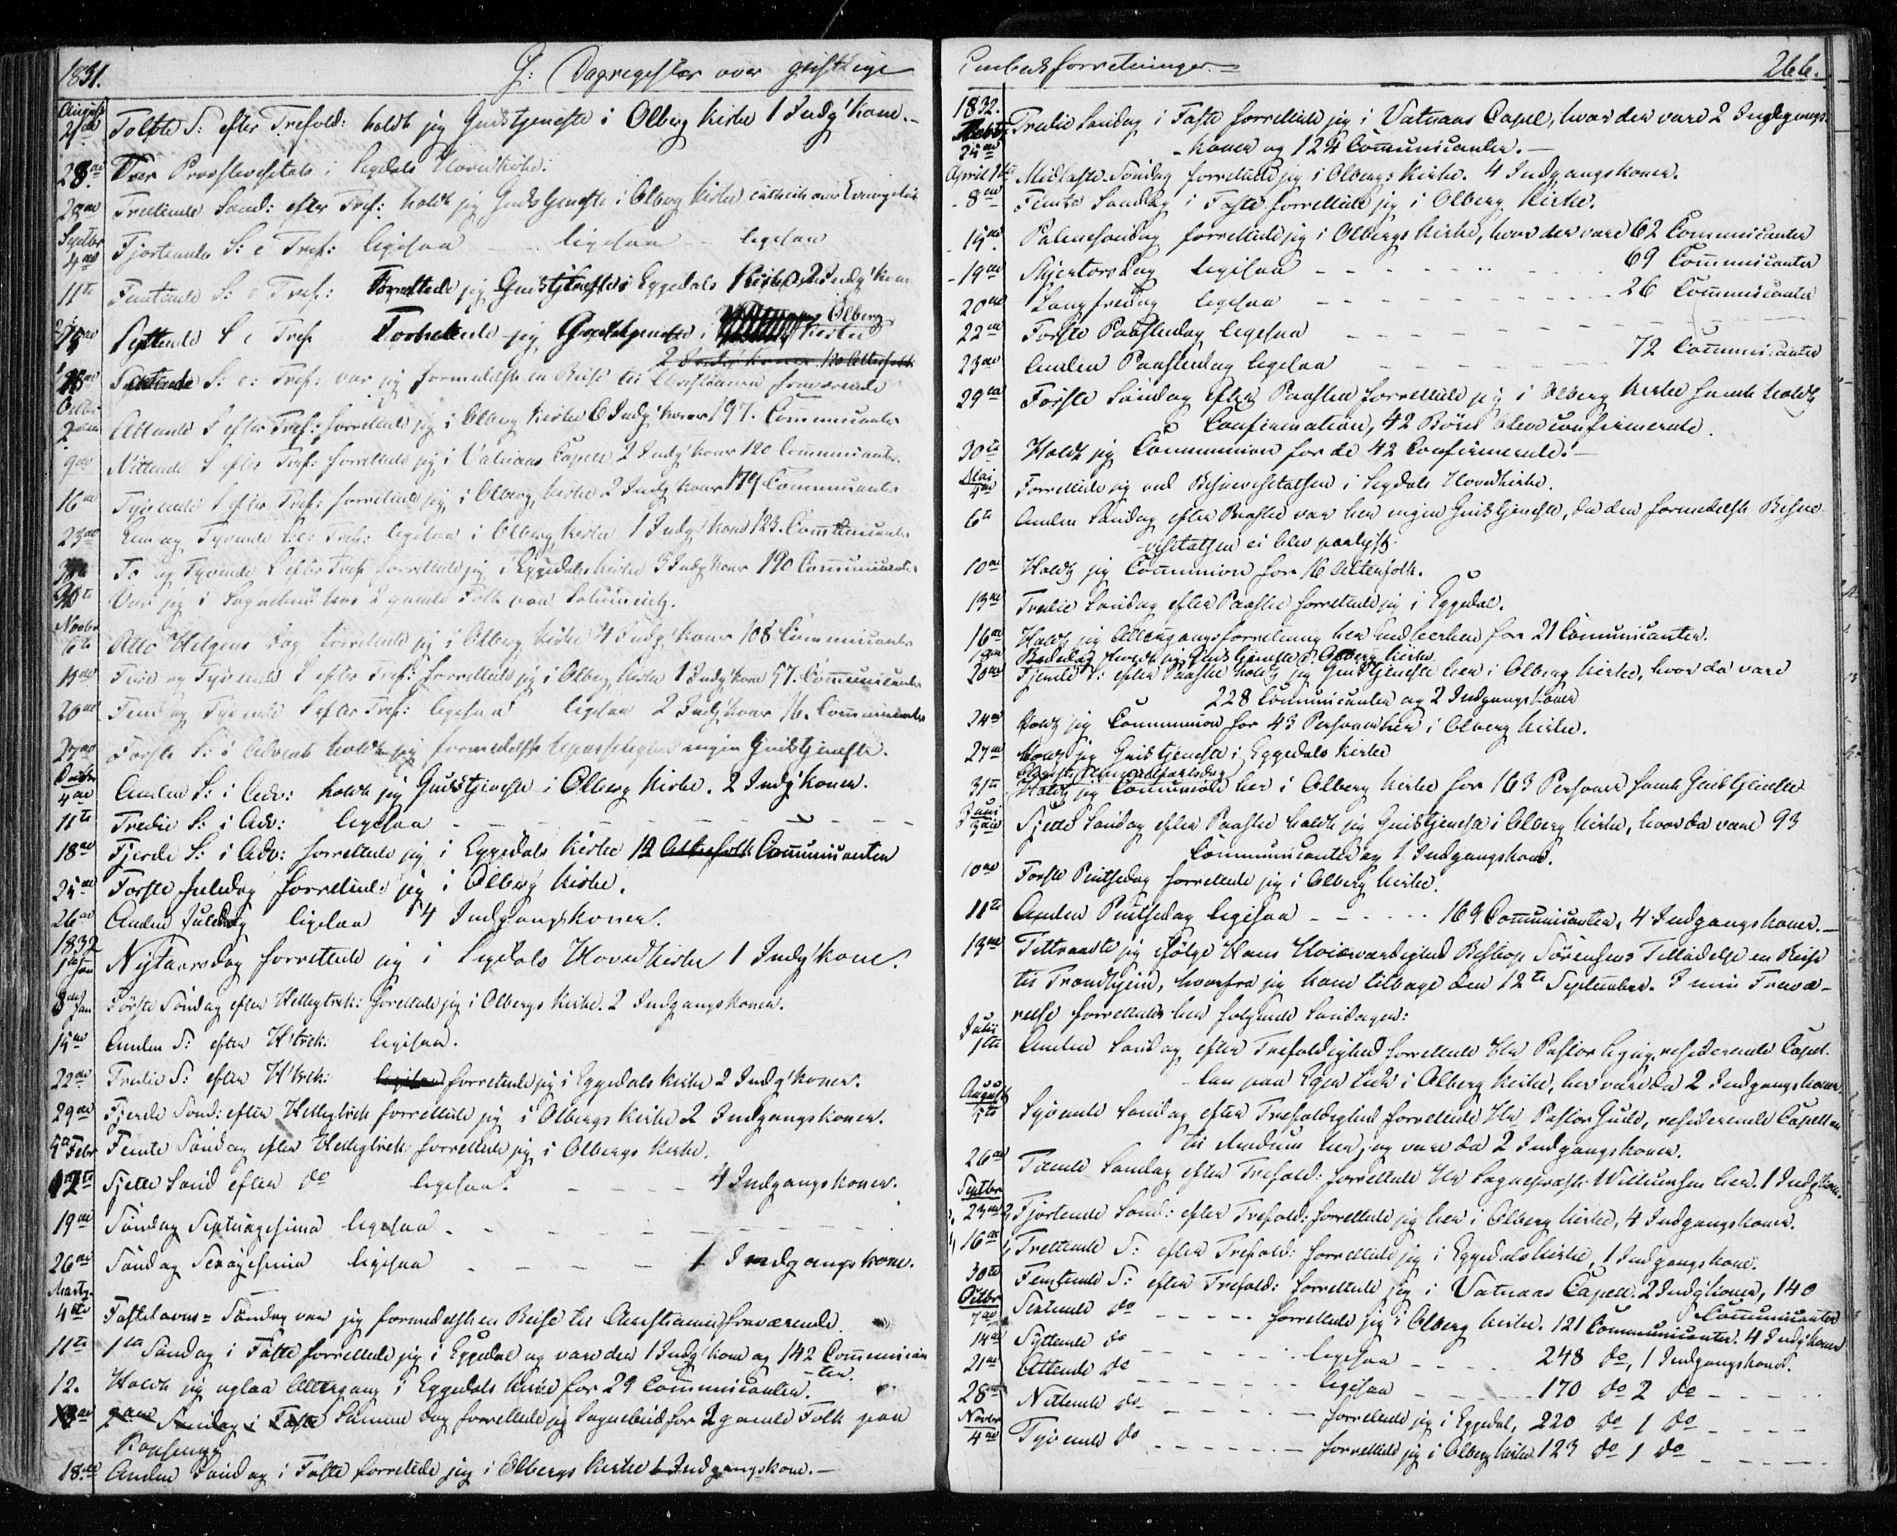 1831.
G: Dagregister over geistlige
August
21de Tolvte S: efter Trefold: holdt jeg Gudstjeneste i Olberg Kirke 1 Indg'kone.
28de Var Provstevisitats i Sigdals Hovedkirke.
Trettende Sønd: efter Tref: holdt jeg Gudstjeneste i Olberg Kirke
Septbr
4de Fjortende S: e Tref: ligesaa ligesaa ligesaa
11te Femtende S: e Tref: Forrettede jeg Gudstjeneste i Eggedals Kirke 2 Indg'koner
Syttende S e Tref Forrettede jeg Gudstjeneste i Olberg Kirke
S: e: Tref: var jeg formedelst en Reise til Christiania fraværende
Octbr
2den Attende S efter Tref: forrettede jeg i Olberg Kirke 6 Indg'koner 197. Communicanter
9de Nittende S efter Tref: forrettede jeg i Vatnaas Capell 2 Indg'koner 120 Communicanter
16de Tyvende S efter Tref: forrettede jeg i Olberg Kirke 2 Indg'koner 179 Communicanter
23de Een og Tyvende S: e: Tref: ligesaa i Olberg Kirke 1 Indg'kone 123. Communicanter
To og Tyvende S efter Tref forrettede jeg i Eggedals Kirke 5 Indg'koner 190 Communicanter
Var jeg i Sognebud hos 2 gamle Folk paa
Novbr
6te Alle Helgens Dag forrettede jeg i Olberg Kirke 4 Indg'koner 108 Communicanter
13de Tree og Tyvende S efter Tref: forrettede jeg i Olberg Kirke 1 Indg'kone 57. Communicanter
20de Fem og Tyvende S efter Tref: ligesaa ligesaa 2 Indg'koner 76. Communicanter
27de Første S: i Advent holdt jeg formedelst Upasselighed ingen Gudstjeneste.
Decbr
4de Anden S: i Adv: holdt jeg Gudstjeneste i Olberg Kirke. 2 Indg'koner.
11te Tredie S: i Adv: ligesaa
18de Fjerde S: i Adv: forrettede jeg i Eggedals Kirke 12 Alterfolk Communicanter
25de Første Juledag forrettede jeg i Olberg Kirke.
26de Anden Juledag ligesaa 4 Indgangskoner.
1832
1ste Jan Nytaarsdag forrettede jeg i Sigdals Hovedkirke 1 Indg'kone.
8de Jan Første Søndag efter Helligtrek: forrettede jeg i Olbergs Kirke. 2 Indgangskoner.
15de Anden S: efter H'trek: ligesaa.
22de Tredie S: efter H'trek: ligesaa forrettede jeg i Eggedals Kirke 2 Indg'koner.
29de Fjerde Sønd: efter Helligtrek forrettede jeg i Olbergs Kirke 2 Indgangskoner.
5te Febr Femte Søndag efter Helligtrek: forrettede jeg i Olbergs Kirke.
12te Sjette Sønd efter do ligesaa. 4 Indgangskoner.
19de Søndag Septuagesima ligesaa
26de Søndag Sexagesima ligesaa 1 Indgangskone.
Marts
4de Fastelavns=Søndag var jeg formedelst en Reise til Christiania fraværende.
11te 1ste Søndag i Faste forrettede jeg i Eggedal og vare der 1 Indg'kone og 142 Communicanter.
12. Holdt jeg ogsaa Altergang i Eggedals Kirke for 29 Communicanter.
13de Søndag i Faste Samme Dag forrettede jeg Sognebud for 2 gamle Folk paa
18de Anden Søndag i Faste forrettede jeg i Olbergs Kirke 1 Indgangskone.
Embedsforretninger.
266.
1832.
Marts
25de Tredie Søndag i Faste forrettede jeg i Vatnaas Capel, hvor der vare 2 Indgangs-
koner og 124 Communicanter.
April 1ste Midfaste Søndag forrettede jeg i Olbergs Kirke. 4 Indgangskoner.
8de Femte Søndag i Faste forrettede jeg i Olberg Kirke.
15de Palmesøndag forrettede jeg i Olbergs Kirke, hvor der vare 62 Communicanter
19de Skjertorsdag ligesaa 69 Communicanter
20de Langfredag ligesaa 26 Communicanter
22de Første Paaskedag ligesaa
23de Anden Paaskedag ligesaa 72 Communicanter
29de Første Søndag efter Paaske forrettede jeg i Olberg Kirke samt holdt
Confirmation, 42 Børn bleve confirmerede.
30te Holdt jeg Communion for de 42 Confirmerede.
Mai
4de Forrettede jeg ved Bispevisitatsen i Sigdals Hovedkirke.
6te Anden Søndag efter Paaske var her ingen Gudstjeneste, da den formedelst Bispe
visitatsen ei blev paalyst.
10de Holdt jeg Communion for 16 Alterfolk.
13de Tredie Søndag efter Paaske forrettede jeg i Eggedal.
16de Holdt jeg Altergangsforretning her i Olberg for 21 Communicanter.
Bededag holdt jeg Gudstjeneste i Olberg Kirke
20de Fjerde S: efter Paaske holdt jeg Gudstjeneste her i Olberg Kirke, hvor da vare
228 Communicanter og 2 Indgangskoner
24de Holdt jeg Communion for 43 Personer her i Olberg Kirke.
27de Holdt jeg Gudstjeneste i Eggedals Kirke
Christi Himmelfartsdag
31te Holdt jeg Communion her i Olberg Kirke for 163 Personer samt Gudstjeneste
Juni
3die Sjette Søndag efter Paaske holdt jeg Gudstjeneste i Olberg Kirke, hvor da vare 93
Communicanter og 1 Indgangskone.
10de Første Pintsedag forrettede jeg i Olberg Kirke.
11te Anden Pintsedag ligesaa 169 Communicanter, 4 Indgangskoner.
13de Tiltraadte jeg ifølge Hans Høiærværdighed Biskop Sørensens Tilladelse en Reise
til Trondhjem, hvorfra jeg kom tilbage den 12te September. I min Fravæ-
relse forrettedes her følgende Søndage:
Julii
1ste Anden Søndag efter Trefoldighed forrettede Hr Pastor residerende Capel-
lan paa Eger i Olberg Kirke, her vare da 2 Indgangskoner.
August
5te Syvende Søndag efter Trefoldighed forrettede Hr Pastor residerende Capellan
til Modum her, og vare da 2 Indgangskoner.
26de Tiende Søndag efter Trefold: forrettede Hr Sognepræst her. 1 Indg'kone.
Septbr
23de Fjortende Sønd: efter Trefold: forrettede jeg her i Olberg Kirke, 4 Indgangskoner.
16de Trettende S: efter Trefold: forrettede jeg i Eggedals Kirke, 1 Indgangskone.
30te Femtende S: efter Trefold: forrettede jeg i Vatnaas Capell. 2 Indg'koner, 140
Communicanter
Octbr
7de Sextende do forrettede jeg i Olberg Kirke. 121 Communicanter. 4 Indg'koner
14de Syttende do ligesaa 248 do, 1 Indgangskone.
21de Attende do ligesaa 170 do 2 do
28de Nittende do forrettede jeg i Eggedal, 220 do 1 do
Novbr
4de Tyvende do forrettede jeg i Olberg Kirke 123 do 1 do